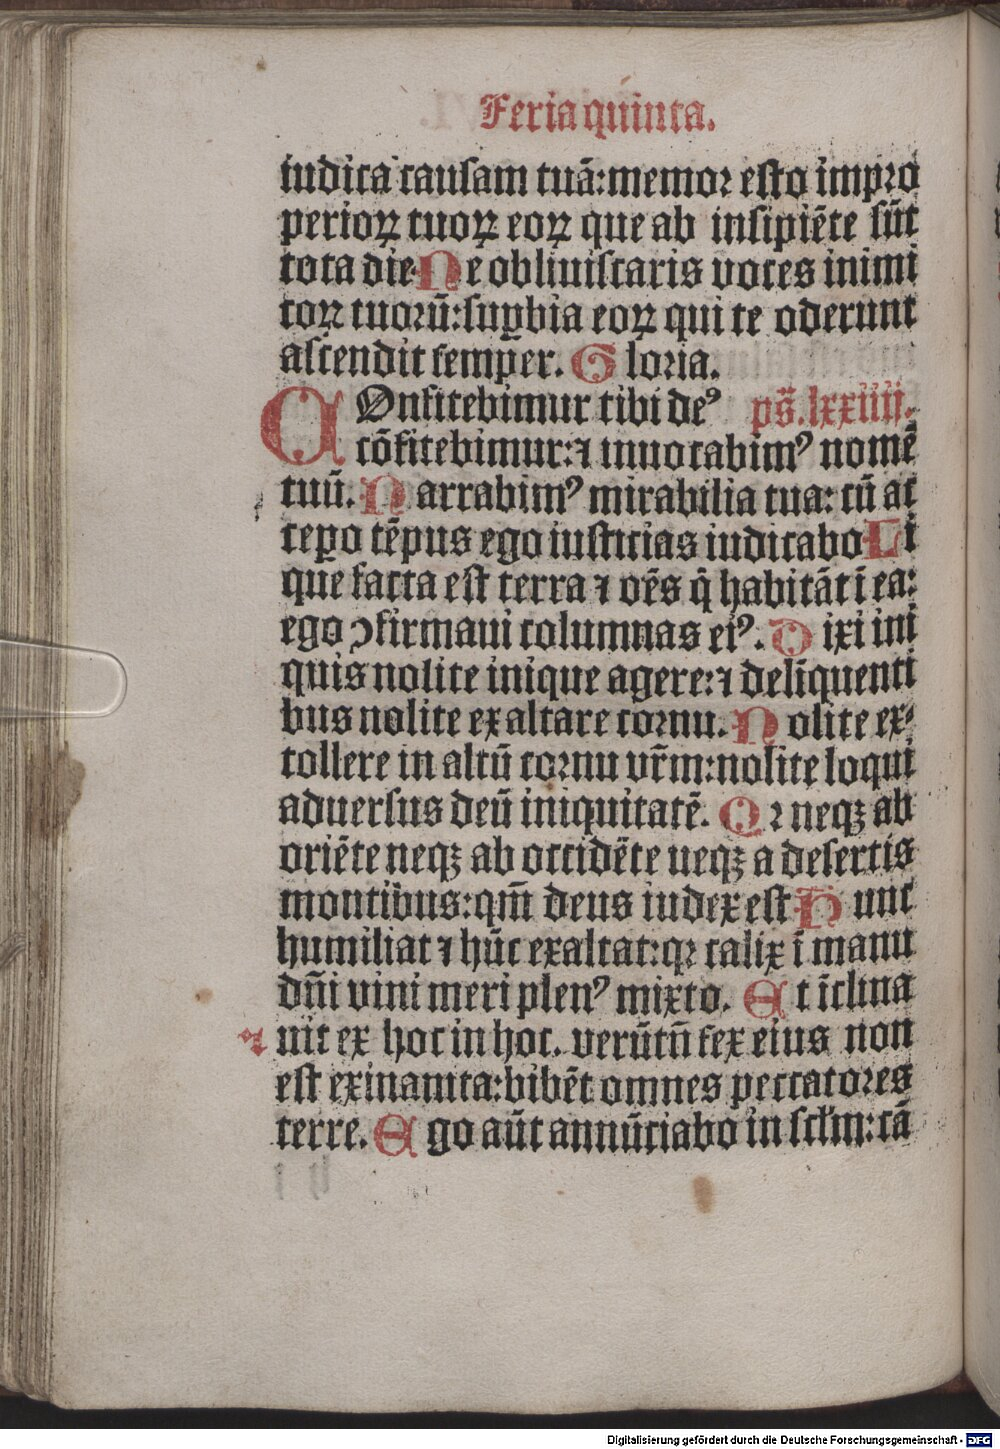 Feria quinta.
iudica causam tuã: memor esto impro
perioꝝ tuoꝝ eoꝝ que ab insipiẽte sũt
tota die Ne obliuiscaris voces inimi
coꝝ tuorũ: suꝑbia eoꝝ qui te oderunt
ascendit semper. Gloria.
COnfitebimur tibi deꝰ ps̃. lxxiiii.
cõfitebimur: ⁊ inuocabimꝰ nomẽ
tuũ. Narrabimꝰ mirabilia tua: cũ ac
cepo tẽpus ego iusticias iudicabo Li
que facta est terra ⁊ oẽs q̃ habitãt ĩ ea:
ego ꝯfirmaui columnas eiꝰ. Dixi ini
quis nolite inique agere: ⁊ deliñquenti
bus nolite exaltare cornu. Nolite ex⸗
tollere in altũ cornu vr̃m: nolite loqui
aduersus deũ iniquitatẽ. Qꝛ neqꝫ ab
oriẽte neqꝫ ab occidẽte neqꝫ a desertis
montibus: qm̃ deus iudex est Hunc
humiliat ⁊ hũc exaltat: qꝛ calix ĩ manu
dñi vini meri plenꝰ mixto. Et ĩclina
uit ex hoc in hoc. verũtñ fex eius non
est exinanita: bibẽt omnes peccatores
terre. Ego aũt annũciabo in sclm̃: cã
Digitalisierung gefördert durch die Deutsche Forschungsgemeinschaft - DFG